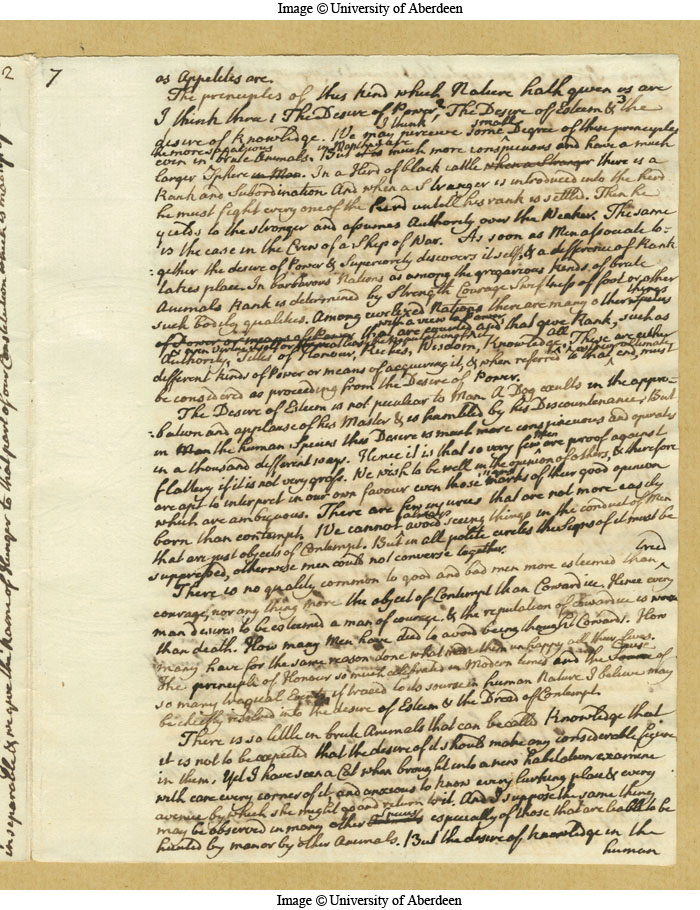 Image © University of Aberdeen
2
7
as Appetites are.
The principles of this kind which Nature hath given us are
I think three 1 The Desire of Power 2 The Desire of Esteem & 3 the
I think small
desire of Knowledge. We may perceive some Degree of these principles
the more sagacious in Man they are
even in brute Animals. But it is much more conspicuous and have a much
larger Sphere in Man. In a Herd of black cattle when a Stranger there is a
Rank and Subordination And when a Stranger is introduced into the herd
he must fight every one of the herd untill his rank is settled. Then he
yields to the stronger and assumes Authority over the Weaker. The same
is the case in the Crew of a Ship of War. As soon as Men associate to-
gether the desire of Power & Superiority discovers it self, & a difference of Rank
takes place. In barbarous Nations as among the gregarious kinds of brute
Animals Rank is determined by Strength Courage Swiftness of foot or other
such bodily qualities. Among civilized Nations there are many other things
with a view to Power
of Power or means of Power that are courted and that give Rank, such as
& even Virtue
Authority, Titles of Honour, Riches, Wisdom, Knowledge. These are either
different kinds of Power or means of acquiring it, & when referred to that end, must
be considered as proceeding from the Desire of Power.
The Desire of Esteem is not peculiar to Man. A Dog exults in the appro-
bation and applause of his Master & is humbled by his Discountenance. But
in Man the human Species this Desire is much more conspicuous and operates
in a thousand different ways. Hence it is that so very few Men are proof against
flattery if it is not very gross. We wish to be well in the opinion of others, & therefore
signs
are apt to interpret in our own favour even those marks of their good opinion
which are ambiguous. There are few injuries that are not more easily
born than contempt. We cannot always avoid seeing things in the conduct of Men
that are just objects of Contempt. But in all polite circles the Signs of it must be
suppressed, otherwise men could not converse together.
There is no quality common to good and bad men more esteemed than
courage, nor any thing more the object of Contempt than Cowardice. Hence every
man desires to be esteemed a man of courage & the reputation of cowardice is worse
than death. How many Men have died to avoid being thought Cowards. How
many have for the same reason done what made them unhappy all their lives.
The principle of Honour so much celebrated in Modern times and the Cause of
so many tragical Events if traced to its source in human Nature I believe may
be chiefly resolved into the desire of Esteem & the Dread of Contempt.
There is so little in brute Animals that can be called Knowledge that
it is not to be expected that the desire of it should make any considerable figure
in them. Yet I have seen a Cat when brought into a new habitation examine
with care every corner of it and anxious to know every lurking place & every
avenue by which she might go and return to it. And I suppose the same thing
may be observed in many other Species especially of those that are liable to be
hunted by man or by other Animals. But the desire of knowledge in the
human
inseparable & we give the Name of Hunger to that part of our Constitution which is made up of
Image © University of Aberdeen